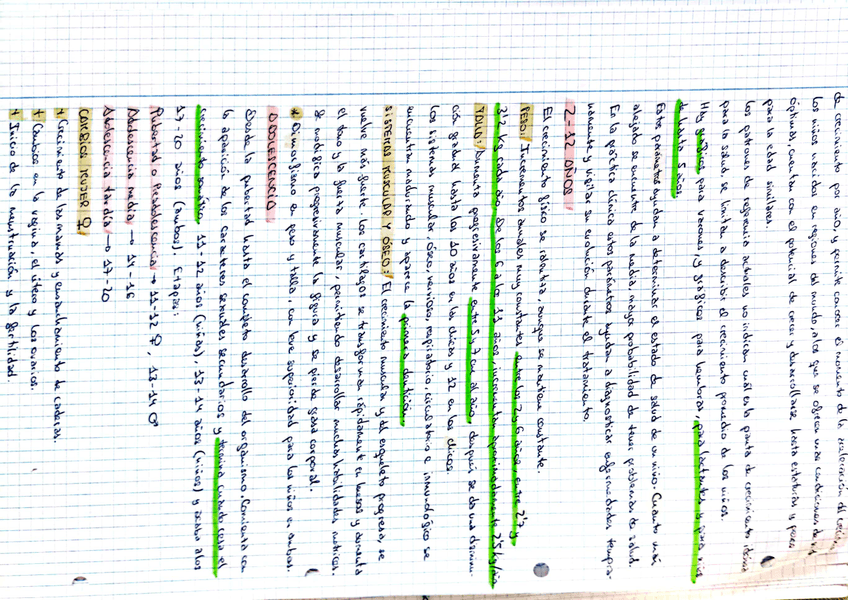 de crecimiento por año, y permite conocer el momento de la aceleración del crecim.
los niños nacidos en regiones del mundo, a los que se ofrecen unas condiciones de vida
óptimas, cuentan con el potencial de crecer y desarrollarse hasta estaturas y pesos
para la edad similares.
los patrones de referencia actuales no indican cuál es la pauta de crecimiento idónea
para la salud, se limitan a describir el crecimiento promedio de los niños.
Hay gráficas para varones, y gráficas para hembras, para lactantes y para niños
de hasta 5 años.
Estos parámetros ayudan a determinar el estado de salud de un niño. Cuanto más
alejado se encuentre de la media, mayor probabilidad de tener problemas de salud.
En la práctica clínica estos parámetros ayudan a diagnosticar enfermedades tempra-
namente y vigilar su evolución durante el tratamiento.
2-12 AÑOS
El crecimiento físico se ralentiza, aunque se mantiene constante.
PESO: Incrementos anuales muy constantes entre los 2 y 6 años entre 2'2 y
2'3 kg cada año. De los 6 a los 11 años, incrementan aproximadamente 2'5 kg/año
TALLA: Aumenta progresivamente entre 5 y 7 cm al año, después se da una disminu-
ción gradual hasta los 10 años en las chicas y 12 en los chicos.
los sistemas muscular, óseo, nervioso, respiratorio, circulatorio e inmunológico se
encuentran madurando y aparece la primera dentición.
SISTEMAS MUSCULAR Y ÓSEO: El crecimiento muscular y del esqueleto progresa, se
vuelve más fuerte. Los cartílagos se transforman rápidamente en huesos y aumenta
el tono y la fuerza muscular, permitiendo desarrollar muchas habilidades motrices.
Se modifica progresivamente la figura y se pierde grasa corporal.
* Dimorfismo en peso y talla, con leve superioridad para los niños en ambos.
ADOLESCENCIA
Desde la pubertad hasta el completo desarrollo del organismo. Comienza con
la aparición de los caracteres sexuales secundarios y termina cuando cesa el
crecimiento somático. 11-12 años (niñas), 13-14 años (niños) y acaba a los
17-20 años (ambos). Etapas:
Pubertad o Preadolescencia → 11-12 ♀, 13-14 ♂
Adolescencia media → 14-16
Adolescencia tardía → 17-20
CAMBIOS MUJER ♀
+ Crecimiento de las mamas y ensanchamiento de caderas.
+ Cambios en la vagina, el útero y los ovarios.
+ Inicio de la menstruación y la fertilidad.